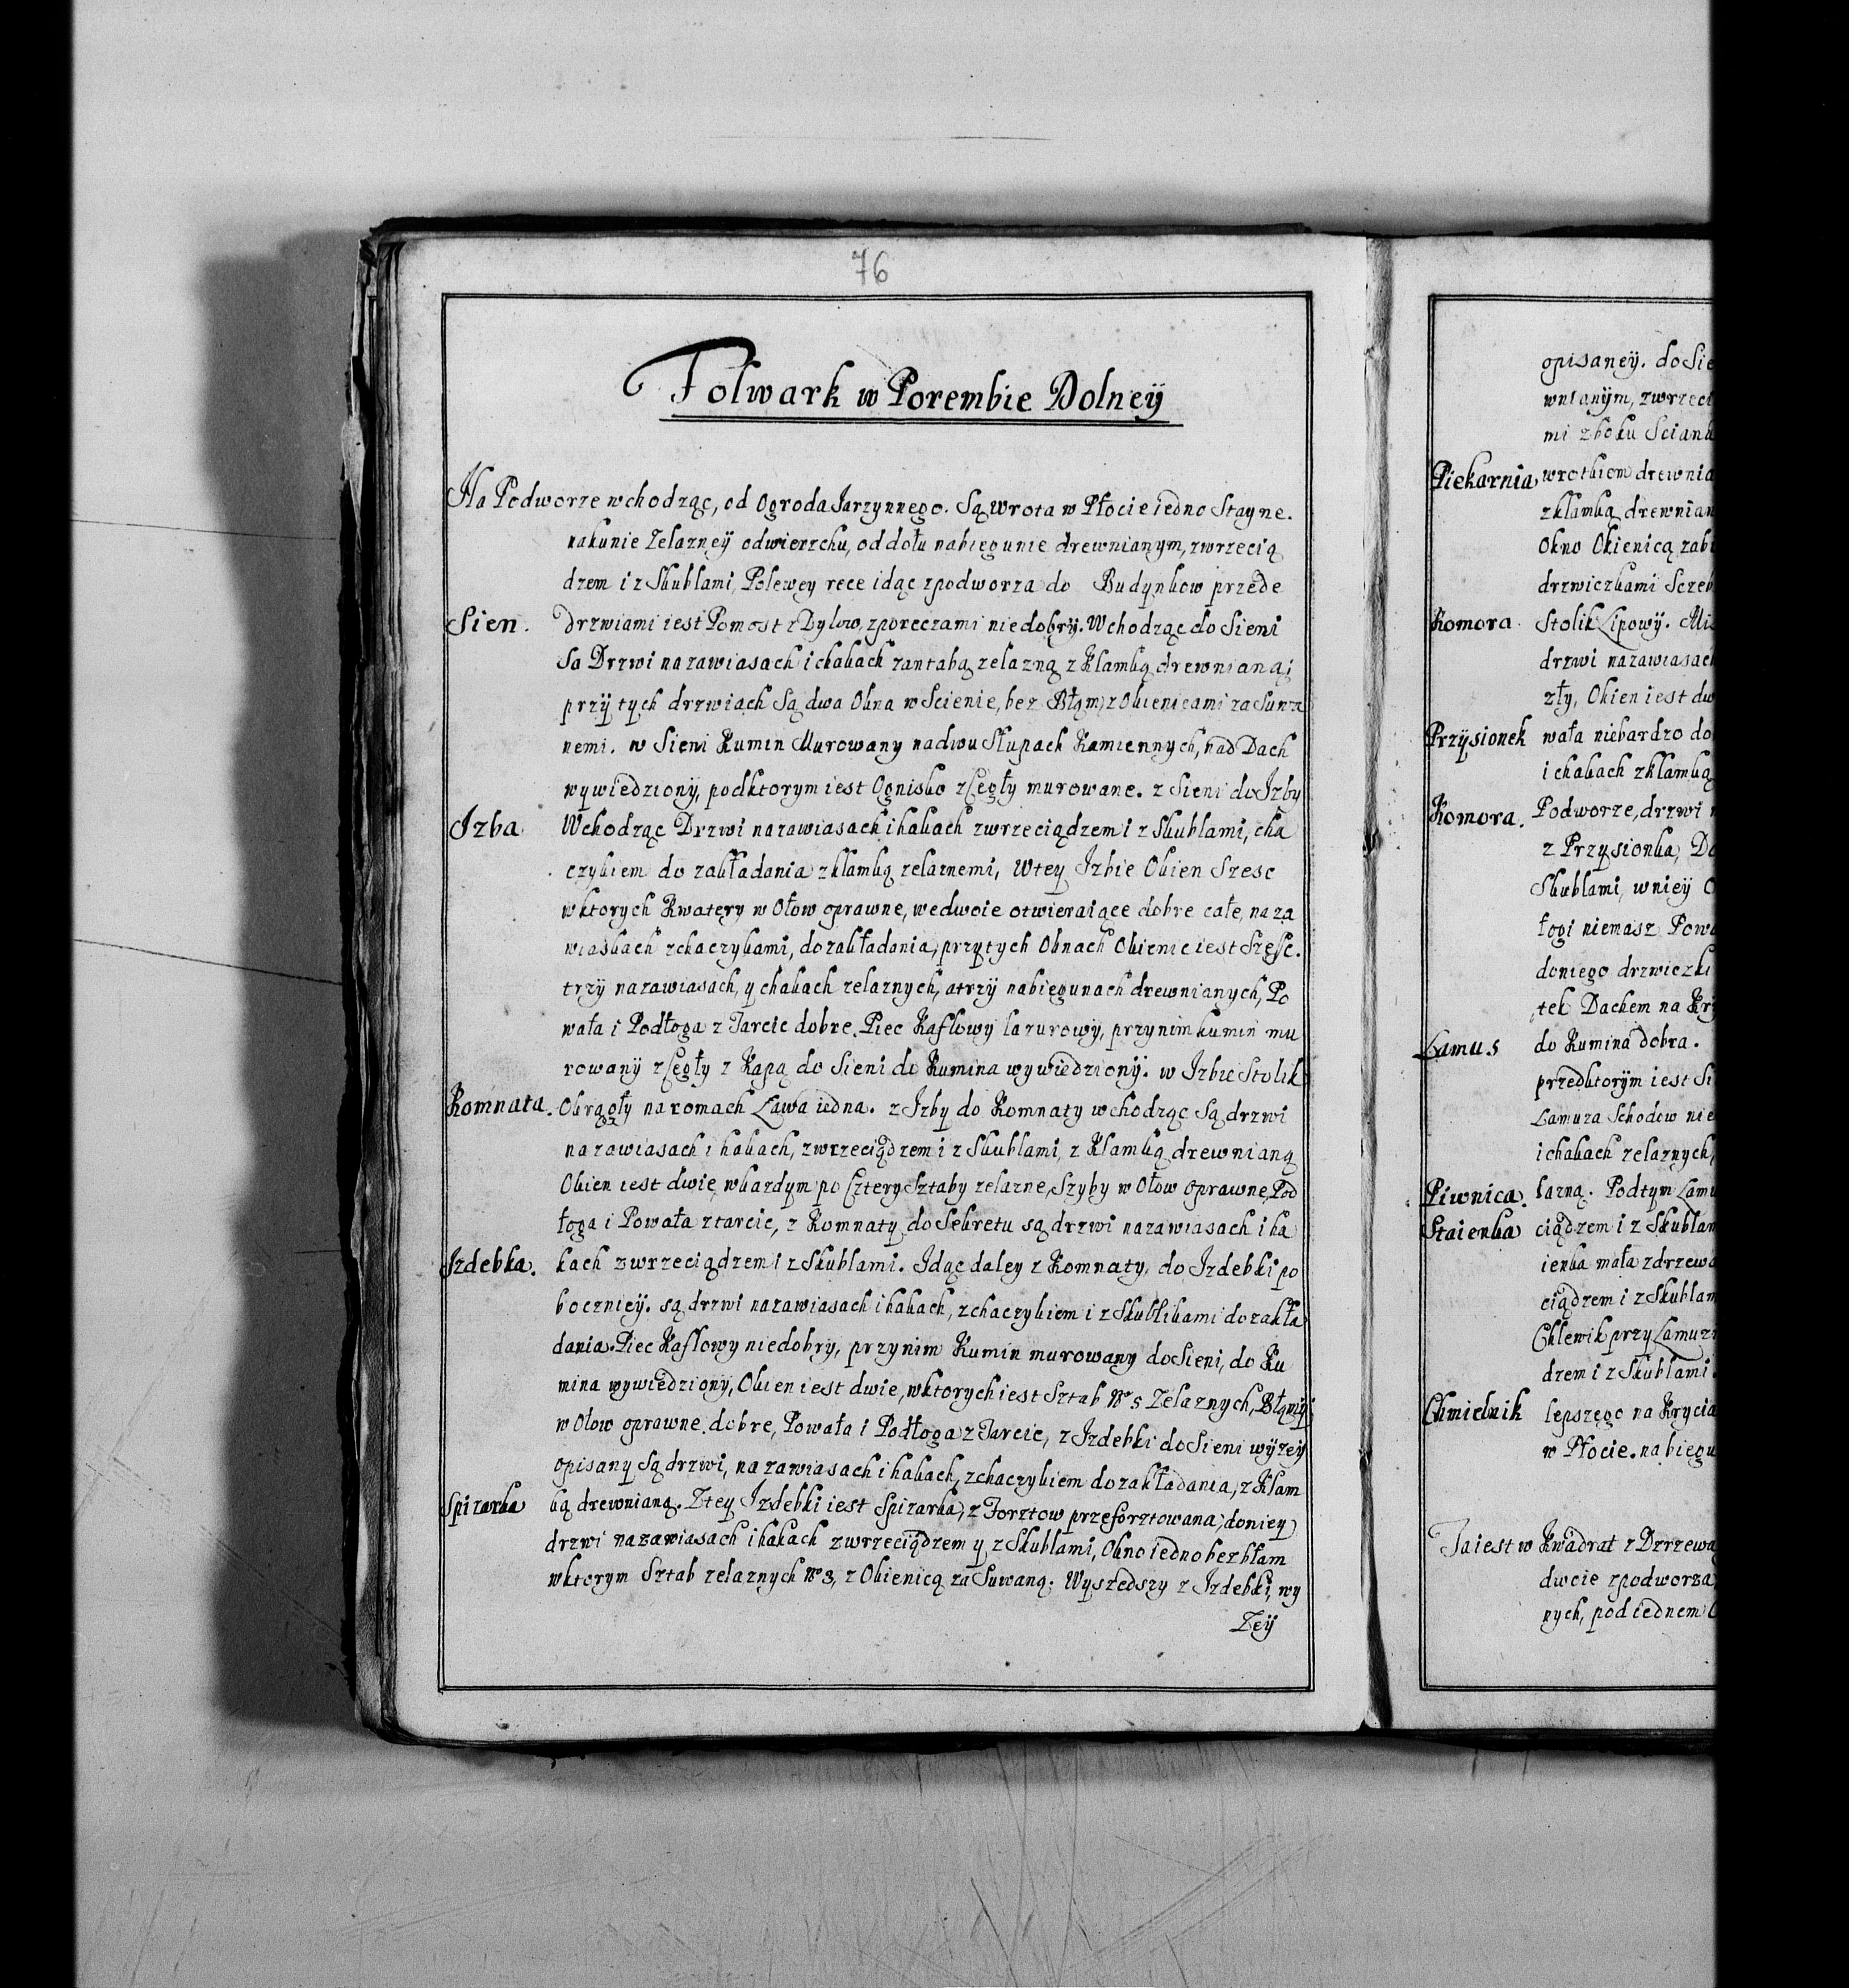 76
Folwark w Porembie Dolneÿ
Na Podworze wchodząc, od Ogroda Jarzynnego. Są wrota w Płocie iedno Stayne.
nakunie Zelazneÿ odwierzchu, oddołu nabiegunie drewnianym, zwrzecią
dzem i z Skublami, Polewey rece idąc zpodworza do Budynkow przede
Sien. drzwiami iest Pomost z Dylow, zporeczami niedobrÿ. Wchodząc do Sieni
Są Drzwi nazawiasach ihakach zantabą zelazną z Klamką drewnianą;
przÿ tych drzwiach Są dwa Okna w Scienie, bez Błąm, z Okienicami zaSuwa
nemi. w Sieni Kumin Murowany nadwu Słupach Kamiennych, nad Dach
wywiedziony, podktorym iest Ognisko zCegły murowane. z Sieni do Izby
Izba. Wchodząc Drzwi nazawiasach ihakach zwrzeciądzem i z Skublami, cha
czykiem do zakładania zklamką zelaznemi, Wtey Izbie Okien Szesc
wktorych Kwatery w Ołow oprawne, wedwoie otwieraiące dobre całe, naza
wiaskach zchaczykami, dozakładania, przytych Oknach Okienic iest Szesc.
trzÿ nazawiasach, y chakach zelaznych, atrzÿ nabiegunach drewnianych, Po
wała i Podłoga z Tarcic dobre. Piec Kaflowy lazurowy, przynim kumin mu
rowanÿ zCegły z Kapą do Sieni do Kumina wywiedziony. w Izbie Stolik
Komnata. Okrągły naromach Ława iedna. z Izby do Komnaty wchodząc Są drzwi
nazawiasach ihakach, zwrzeciądzem i z Skublami, z Klamką drewnianą
Okien iest dwie, wkazdym po Cztery Sztaby zelazne, Szyby w Ołow oprawne, Pod
łoga i Powała ztarcic, z Komnaty do Sekretu są drzwi nazawiasach i ha
Izdebka. kach zwrzeciądzem i z Skublami. Idąc daley z Komnaty, do Izdebki po
boczniey. są drzwi nazawiasach ihakach, zchaczykiem i z Skublikami dozakła
dania. Piec Kaflowy niedobry, przynim Kumin murowany doSieni, do Ku
mina wywiedziony, Okien iest dwie, wktorych iest Sztab No 5 Zelaznych, Błąmÿ
w Ołow oprawne dobre, Powała i Podłoga z Tarcic, z Izdebki doSieni wÿzeÿ
opisany Są drzwi, nazawiasach ihakach, zchaczykiem dozakładania, z Klam
Spizarka ką drewnianą. Ztey Izdebki iest Spizarka, z Forztow przeforztowana, doniey
drzwi nazawiasach ihakach zwrzeciądzem y z Skublami, Okno iedno bezbłam
wktorym Sztab zelaznych No 3, z Okienicą zaSuwaną. Wyszedszy z Izdebki, wy
Zeÿ
opisaneÿ. do Sie
wnianÿm, zwrzec
mi zboku Sciank
Piekarnia wrotkiem drewnia
zklamką drewnian
Okno Okienicą zab
drzwiczkami Szreb
Komora. Stolik Lipowÿ. Mi
drzwi nazawiasach
zły, Okien iest dw
Przÿsionek wała niebardzo do
ichakach zklamką
Komora. Podworze, drzwi n
z Przysionka, Do
Skublami, wnieÿ O
łogi niemasz Powa
doniego drzwiczki
tek Dachem na Krÿ
Lamus do Kumina dobra.
przedktorÿm iest Si
Lamuza Schodow nie
ichakach zelaznych,
Piwnica. lazną. Podtym Lamu
Staienka ciądzem i z Skublam
ienka mała zdrzewa
ciądzem i z Skublam
Chlewik przy Lamuz
dzem i z Skublami
Chmielnik lepszego na Krycia
w Płocie. nabiegu
Ta iest w Kwadrat z Drzewa
dwoie zpodworza
nych, pod iednem